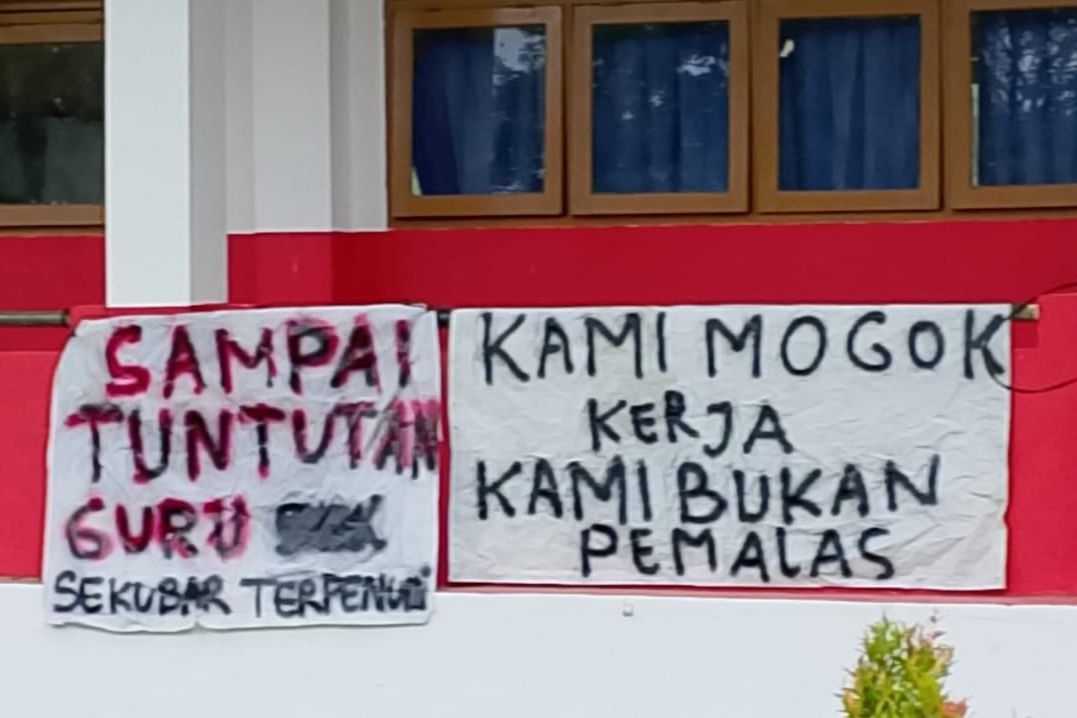 SAMPAI
TUNTUTAN
GURU
SEKUBAR TERPENUHI
KAMI MOGOK
KERJA
KAMI BUKAN
PEMALAS